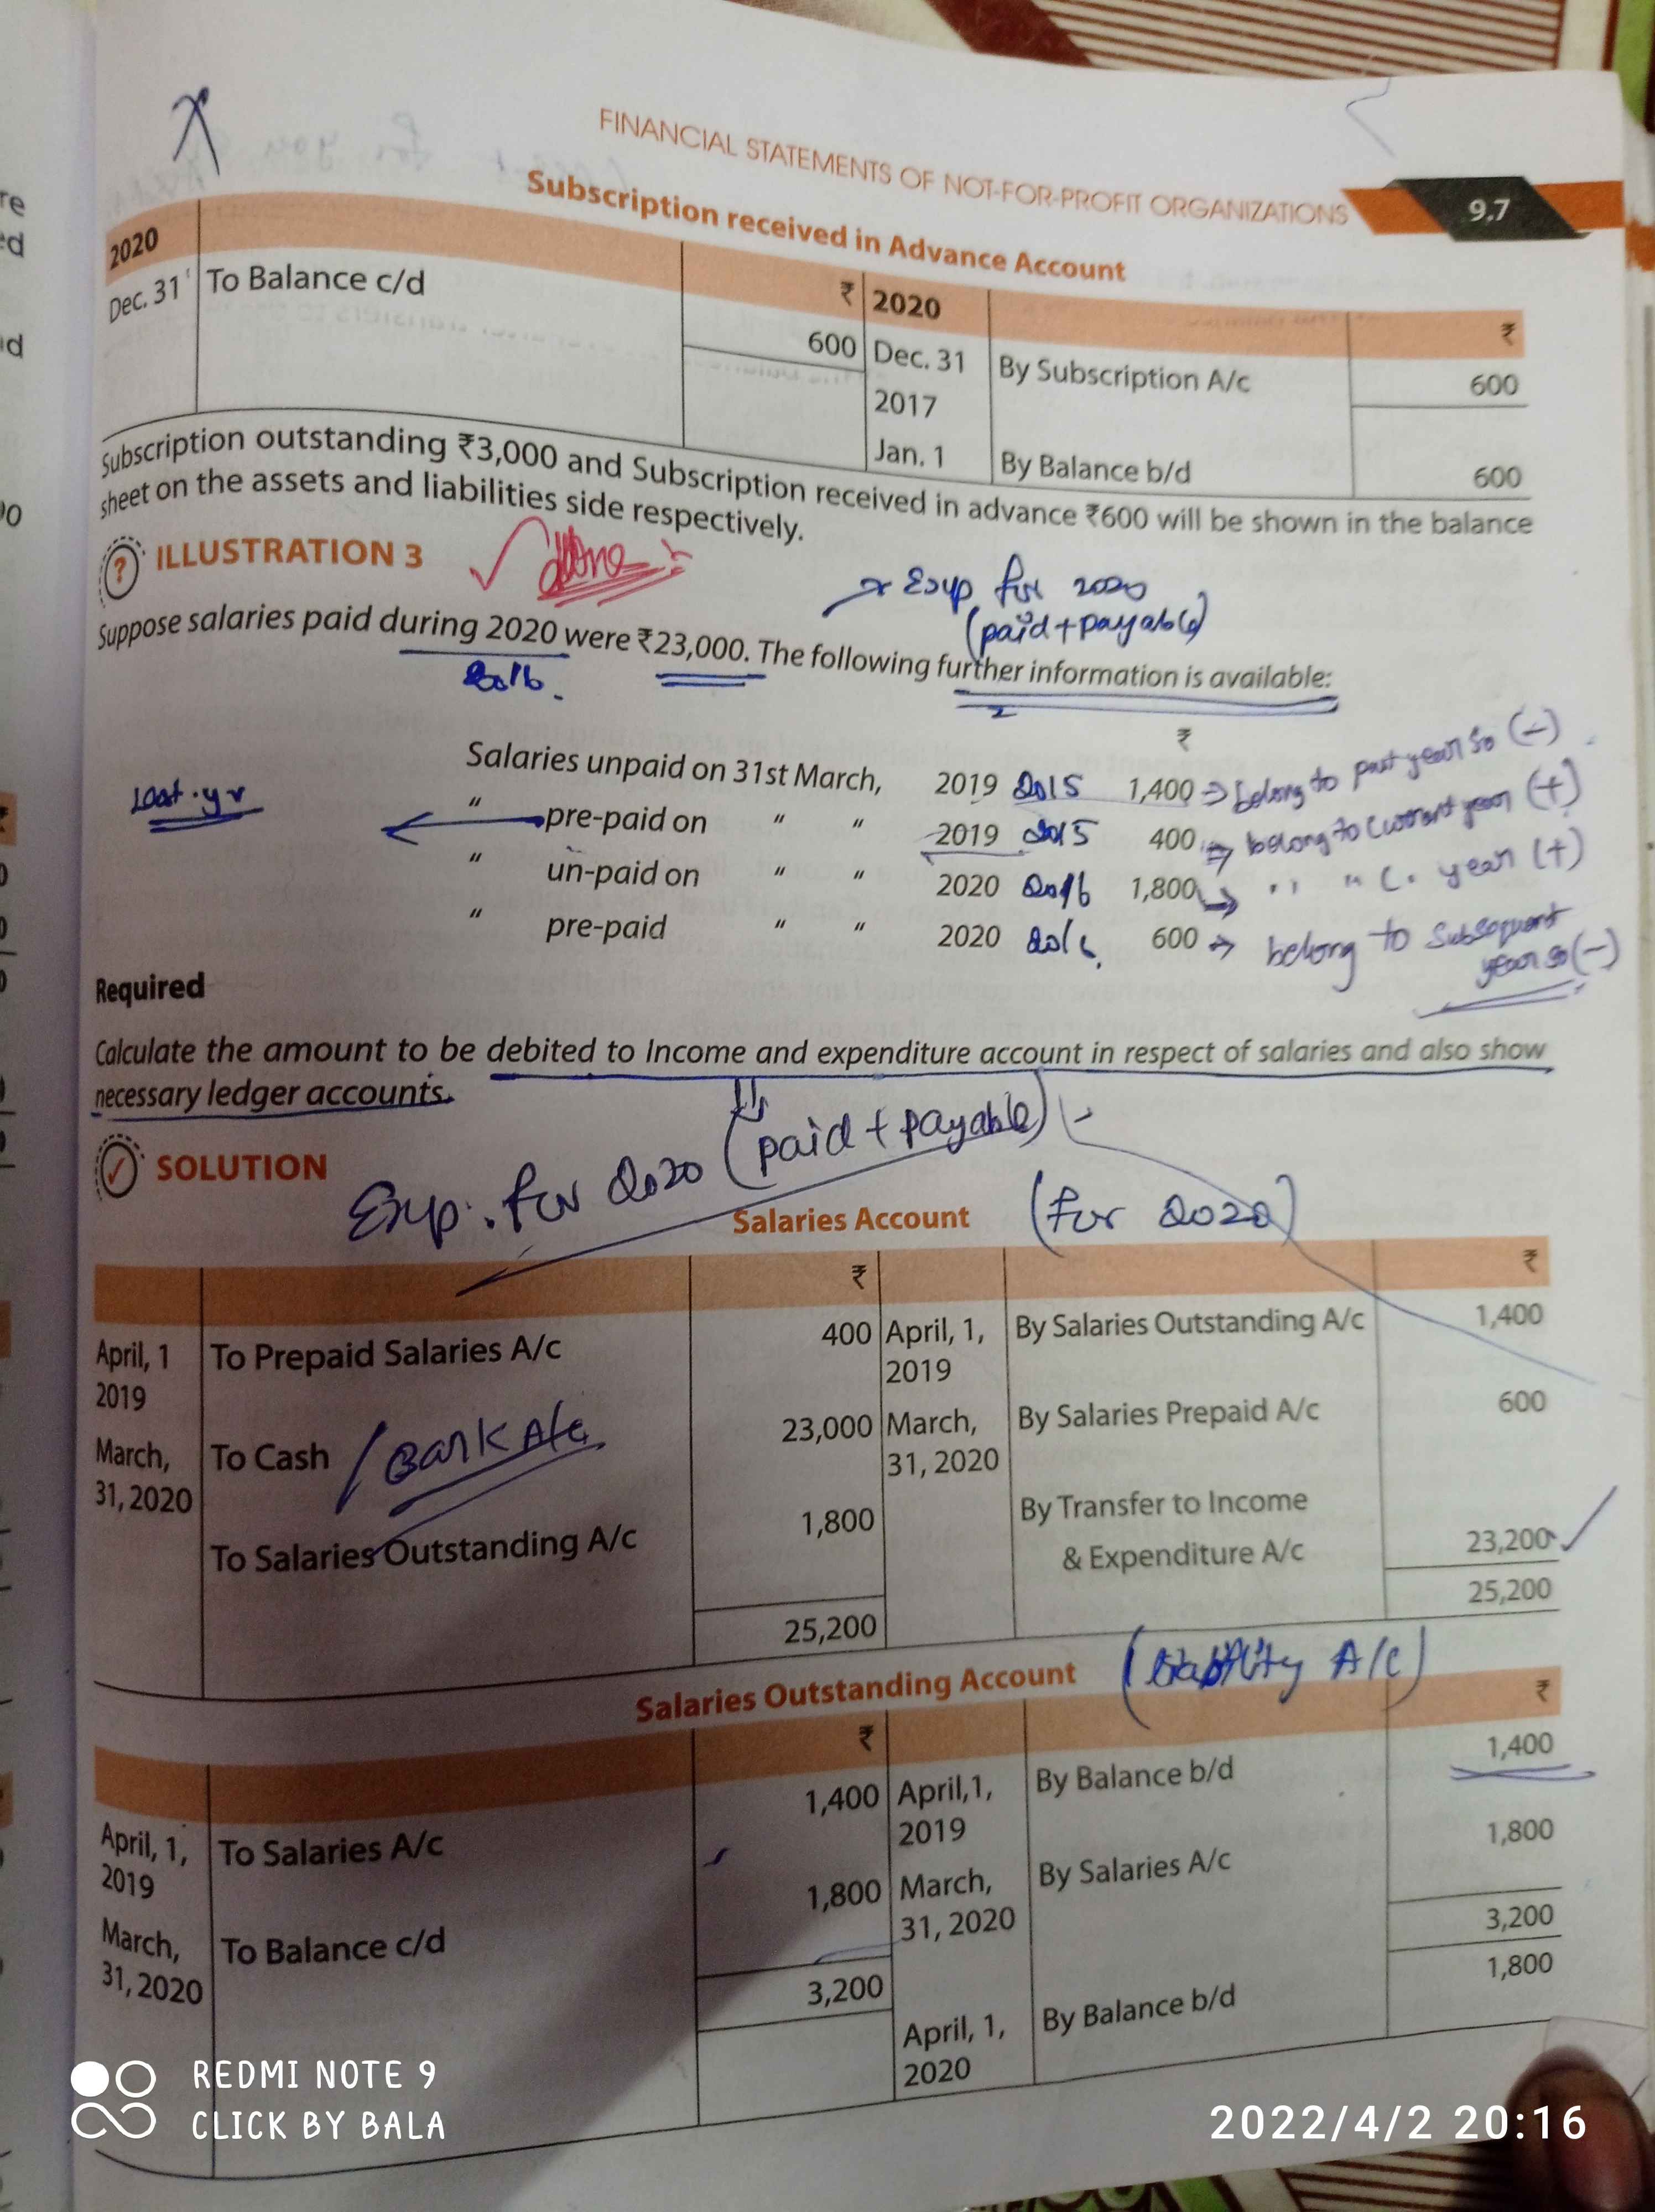 FINANCIAL STATEMENTS OF NOT-FOR-PROFIT ORGANIZATIONS 9.7
Subscription received in Advance Account
2020 ₹ 2020 ₹
Dec. 31 To Balance c/d 600 Dec. 31 By Subscription A/c 600
2017
Jan. 1 By Balance b/d 600
Subscription outstanding ₹3,000 and Subscription received in advance ₹600 will be shown in the balance
sheet on the assets and liabilities side respectively.
? ILLUSTRATION 3 done
Exp for 2020
(paid + payable)
Suppose salaries paid during 2020 were ₹23,000. The following further information is available:
2016.
₹
Salaries unpaid on 31st March, 2019 2015 1,400 ⇒ belong to past year so (-)
Last yr " pre-paid on " " 2019 2015 400 ⇒ belong to current year (+)
" un-paid on " " 2020 2016 1,800 → " " C. year (+)
" pre-paid " " 2020 2016 600 ⇒ belong to Subsequent
year so (-)
Required
Calculate the amount to be debited to Income and expenditure account in respect of salaries and also show
necessary ledger accounts.
SOLUTION
Exp. for 2020 (paid + payable)
Salaries Account (for 2020)
₹ ₹
April, 1 To Prepaid Salaries A/c 400 April, 1, By Salaries Outstanding A/c 1,400
2019 2019
March, To Cash / Bank A/c 23,000 March, By Salaries Prepaid A/c 600
31, 2020 31, 2020
To Salaries Outstanding A/c 1,800 By Transfer to Income
& Expenditure A/c 23,200
25,200 25,200
Salaries Outstanding Account (Liability A/c)
₹ ₹
April, 1, To Salaries A/c 1,400 April,1, By Balance b/d 1,400
2019 2019
March, To Balance c/d 1,800 March, By Salaries A/c 1,800
31, 2020 31, 2020
3,200 3,200
April, 1, By Balance b/d 1,800
2020
REDMI NOTE 9
CLICK BY BALA
2022/4/2 20:16